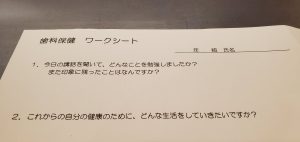 歯科保健 ワークシート
年 組 氏名
1. 今日の講話を聞いて、どんなことを勉強しましたか?
また印象に残ったことはなんですか?
2. これからの自分の健康のために、どんな生活をしていきたいですか?